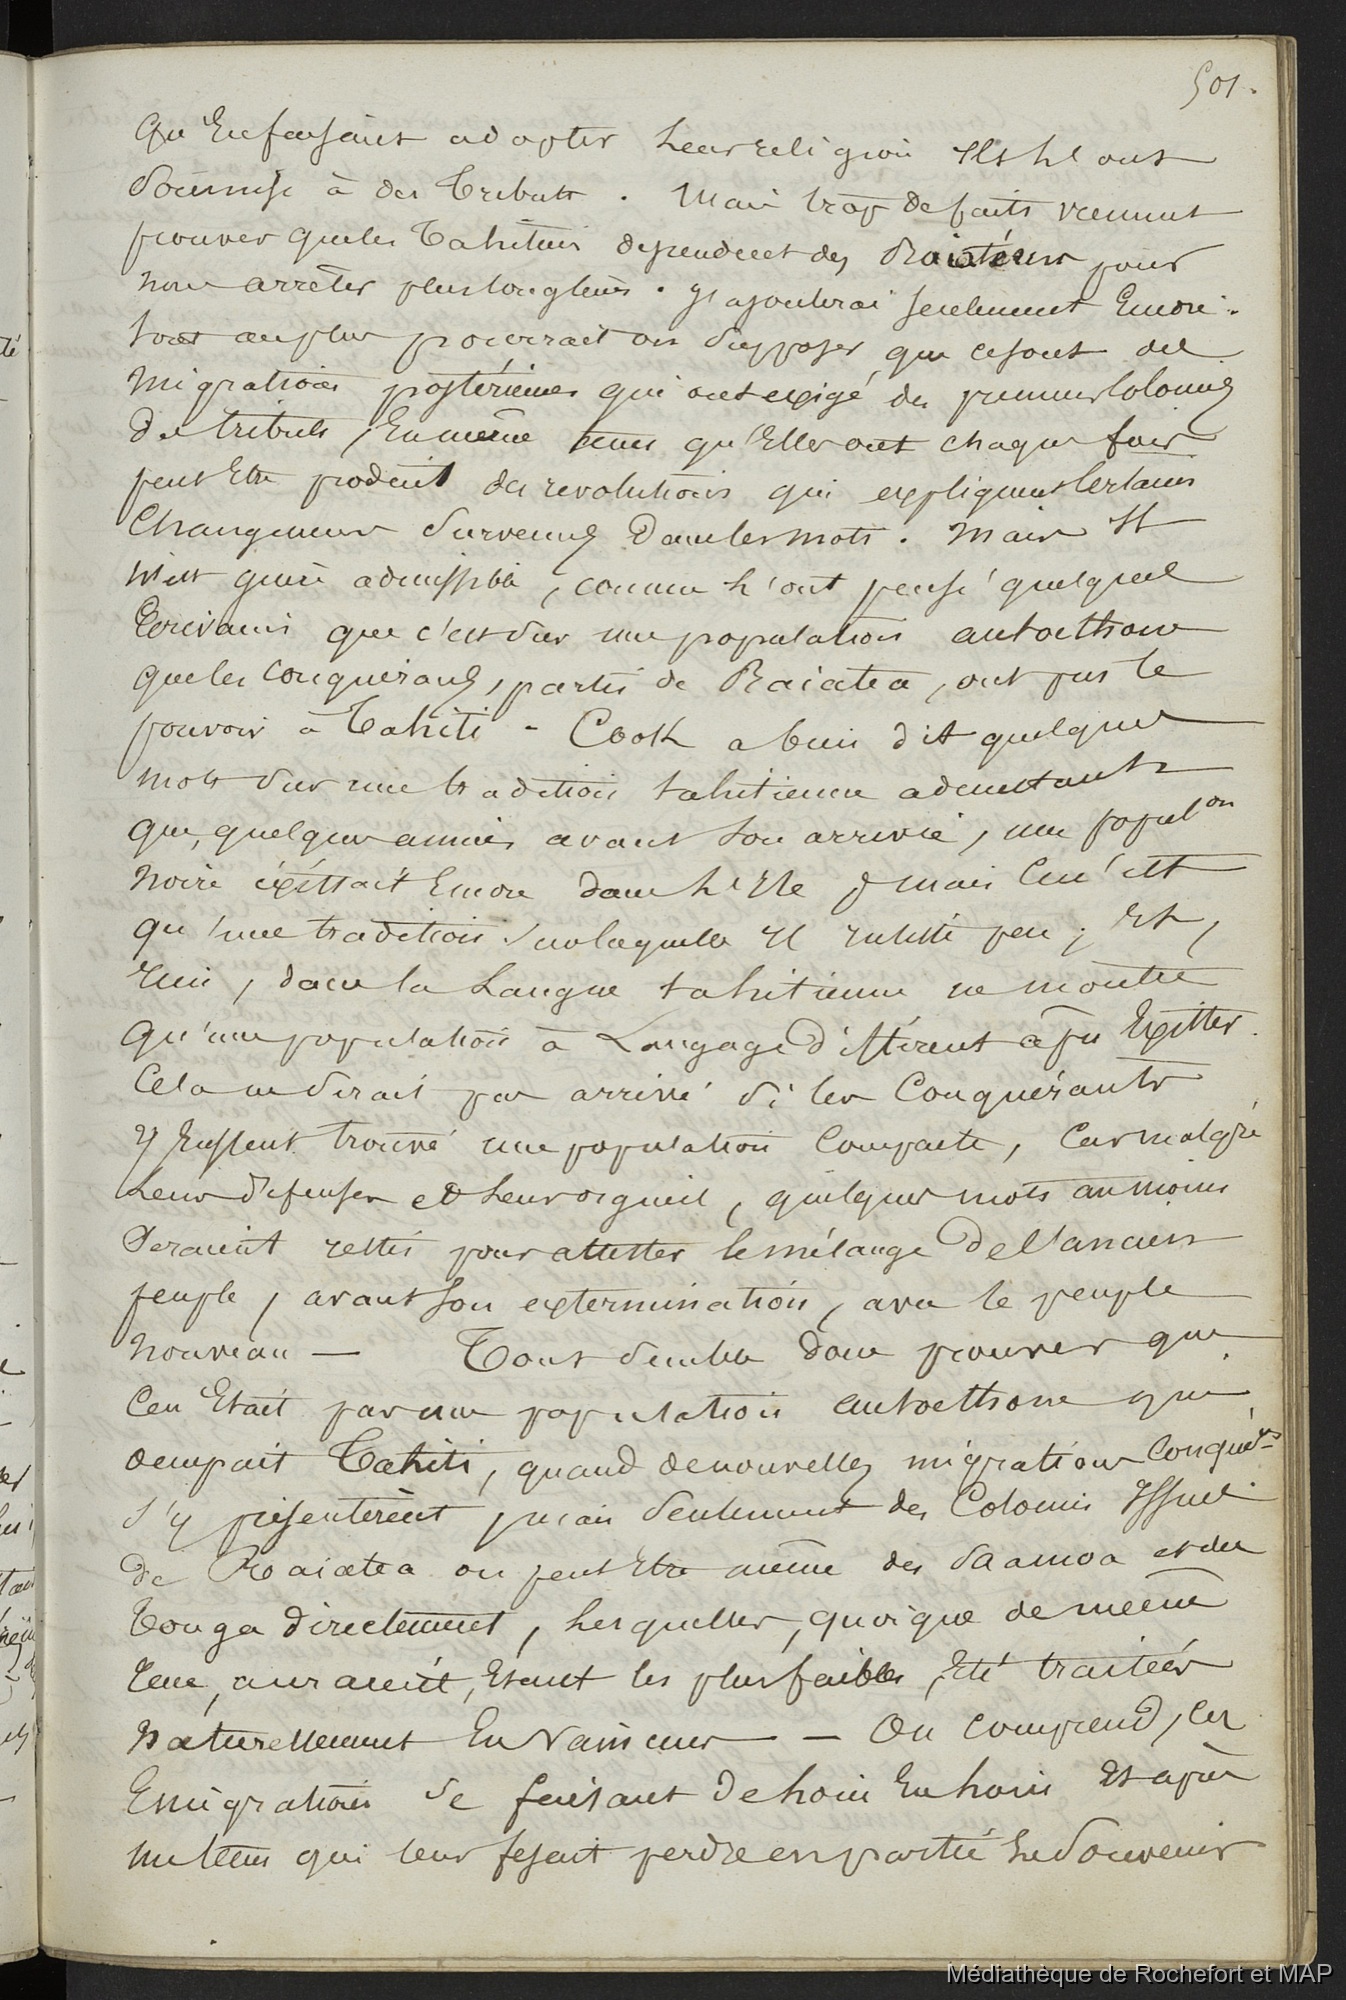 501.
qu'en faisant adopter leur religion ils l'ont
soumise à des tributs. Mais trop de faits viennent
prouver que les Tahitiens dependent des Raiatéens pour
nous arrêter plus longtems. J'ajouterai seulement encore :
tout au plus pourrait on supposer que ce sont des
migrations postérieures qui ont exigé des premiers colonnes
des tributs, en même tems qu'elles ont chaque fois
peut être produit des revolutions qui expliquent certains
changemens survenus dans les mots. Mais il
n'est guère admissible, comme l'ont pensé quelques
Ecrivains que c'est sur une population autocthone
que les conquérans, partis de Raiatea, ont pris le
pouvoir à Tahiti - Cook a bien dit quelques
mots sur une tradition tahitienne admettant
que, quelques années avant son arrivée, une popul^on
noire existait encore dans l'île ; mais ce n'est
qu'une tradition sur laquelle il insiste peu ; et,
rien, dans la langue tahitienne ne montre
qu'une population à langage différent a pu exister.
Cela ne serait pas arrivé si les Conquérants
y eussent trouvé une population compacte, car malgré
leurs défenses et leur orgueil, quelques mots au moins
seraient restés pour attester le mélange de l'ancien
peuple, avant son extermination, avec le peuple
nouveau — Tout semble donc prouver que
ce n'était pas une population autocthone qui
occupait Tahiti, quand de nouvelles migrations conquér^es
s'y présentèrent, mais seulement des Colonies issues
de Raiatea ou peut être même des Saamoa et des
Tonga directement, lesquelles, quoique de même
race, auraient, étant les plus faibles, été traitées
naturellement en vaincues — On comprend, ces
Emigrations se faisant de loin en loin et après
un tems qui leur fesait perdre en partie le souvenir
Médiathèque de Rochefort et MAP